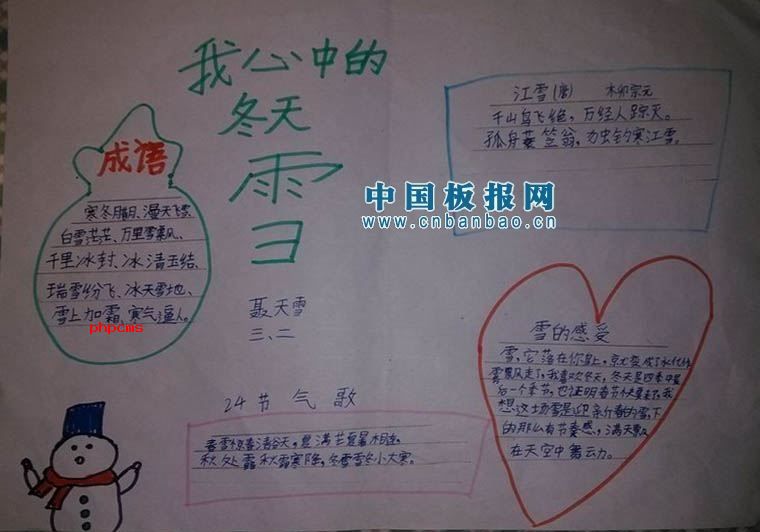 我心中的
冬天
雪
成语
寒冬腊月、漫天飞雪
白雪茫茫、万里雪飘、
千里冰封、冰清玉结、
瑞雪纷飞、冰天雪地、
雪上加霜、寒气逼人。
phpcms
江雪(唐) 柳宗元
千山鸟飞绝，万经人踪灭。
孤舟蓑笠翁，独钓寒江雪。
中国板报网
www.cnbanbao.cn
聂天雪
三、二
雪的感受
雪，它落在你身上，就变成了水化作
雾飘风走了，我喜欢冬天，冬天是四季中最
后一个季节，也证明春节快要来了，我
想这场雪是迎亲行春的雪，下
的那么有节奏感，满天飘
在天空中舞动。
24节气歌
春雪惊春清谷天，夏满芒夏暑相连。
秋处露秋霜寒降，冬雪雪冬小大寒。